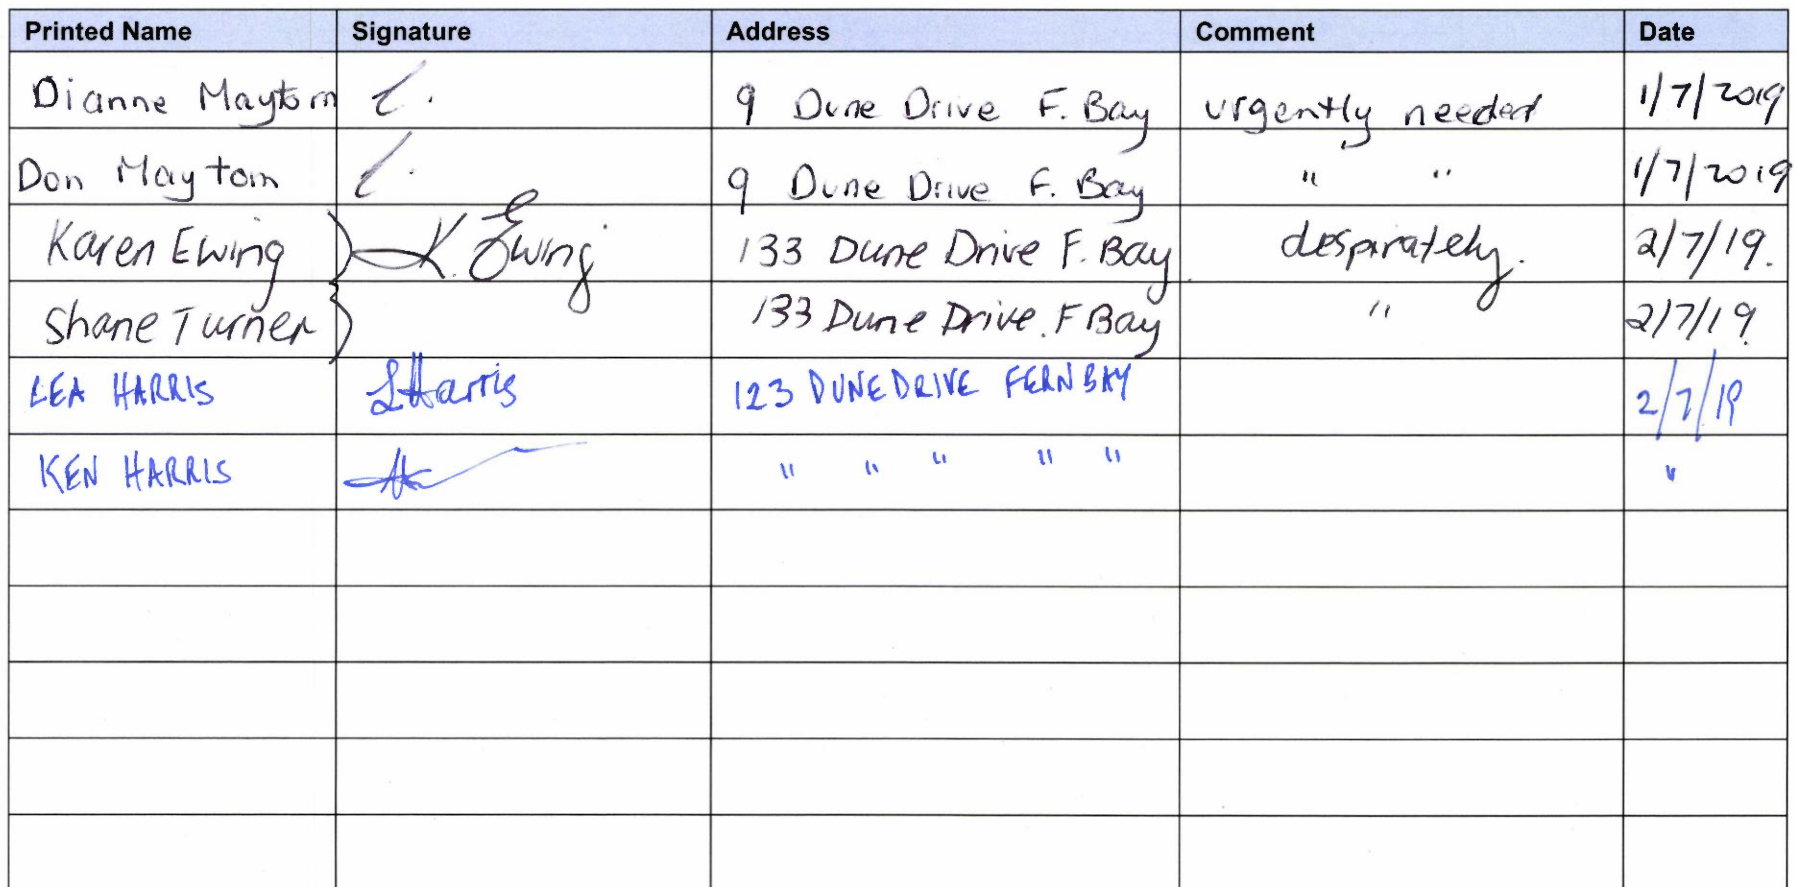 Printed Name Signature Address Comment Date
Dianne Maytom 9 Dune Drive F. Bay urgently needed 1/7/2019
Don Maytom 9 Dune Drive F. Bay " " 1/7/2019
Karen Ewing K. Ewing 133 Dune Drive F. Bay desprately. 2/7/19.
Shane Turner 133 Dune Drive. F Bay " 2/7/19
LEA HARRIS LHarris 123 DUNE DRIVE FERN BAY 2/7/19
KEN HARRIS " " " " " "